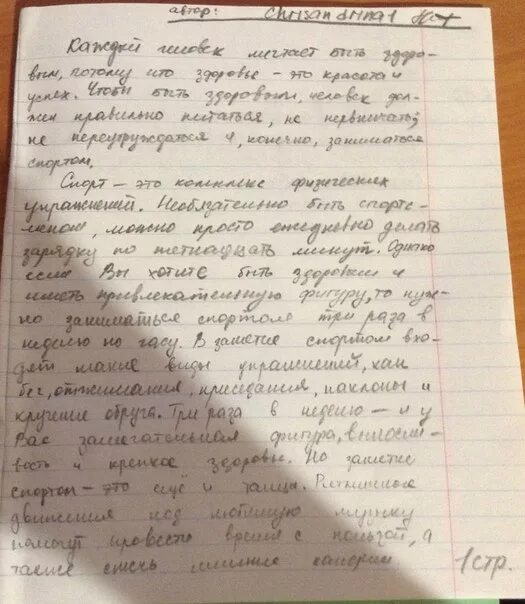 автор: Chrisandrina1
Каждый человек мечтает быть здоро-
вым, потому что здоровье - это красота и
успех. Чтобы быть здоровым, человек дол-
жен правильно питаться, не нервничать,
не переутруждаться и, конечно, заниматься
спортом.
Спорт - это комплекс физических
упражнений. Необязательно быть спортс-
меном, можно просто ежедневно делать
зарядку по пятнадцать минут. Однако
если Вы хотите быть здоровым и
иметь привлекательную фигуру, то нуж-
но заниматься спортом три раза в
неделю по часу. В занятие спортом вхо-
дят такие виды упражнений, как
бег, отжимания, приседания, наклоны и
кручение обруча. Три раза в неделю - и у
Вас замечательная фигура, выносли-
вость и крепкое здоровье. Но занятие
спортом - это ещё и танцы. Ритмичные
движения под любимую музыку
помогут провести время с пользой, а
также сжечь лишние калории
1 стр.